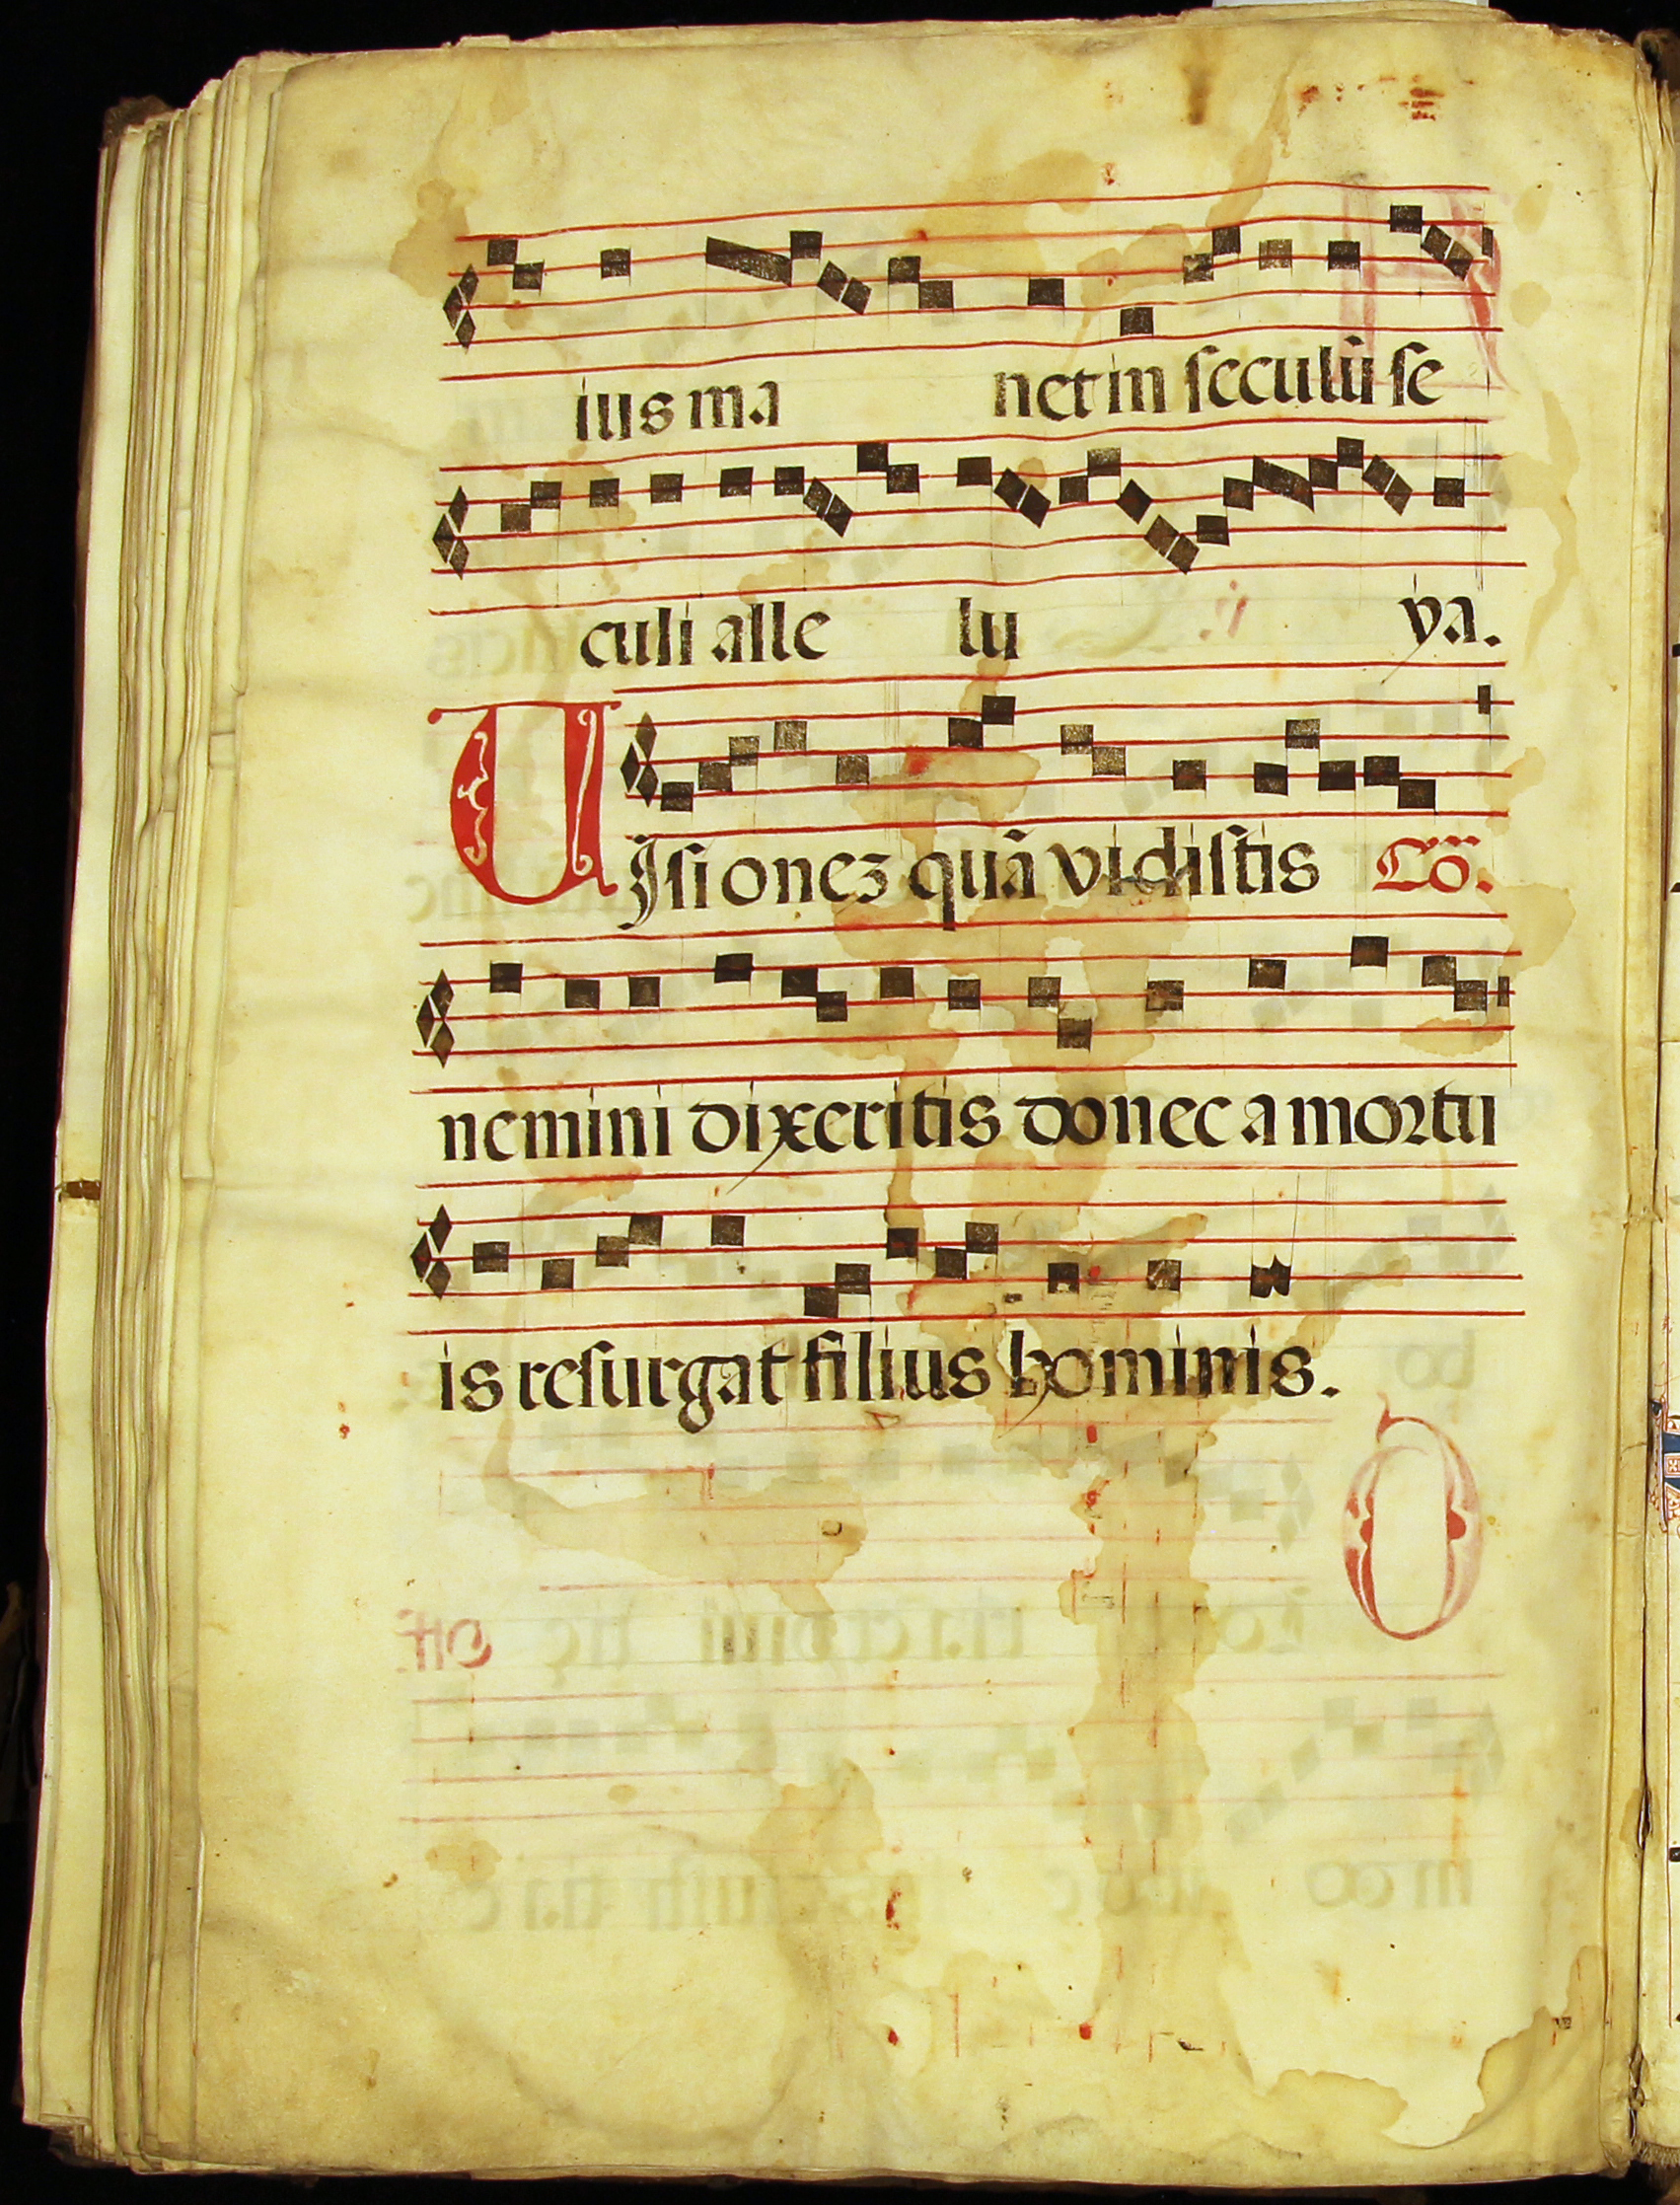 ius ma net in seculū se
culi alle lu ya.
VIsi onez quā vidistis Cō.
nemini dixeritis donec a mortu
is resurgat filius hominis.